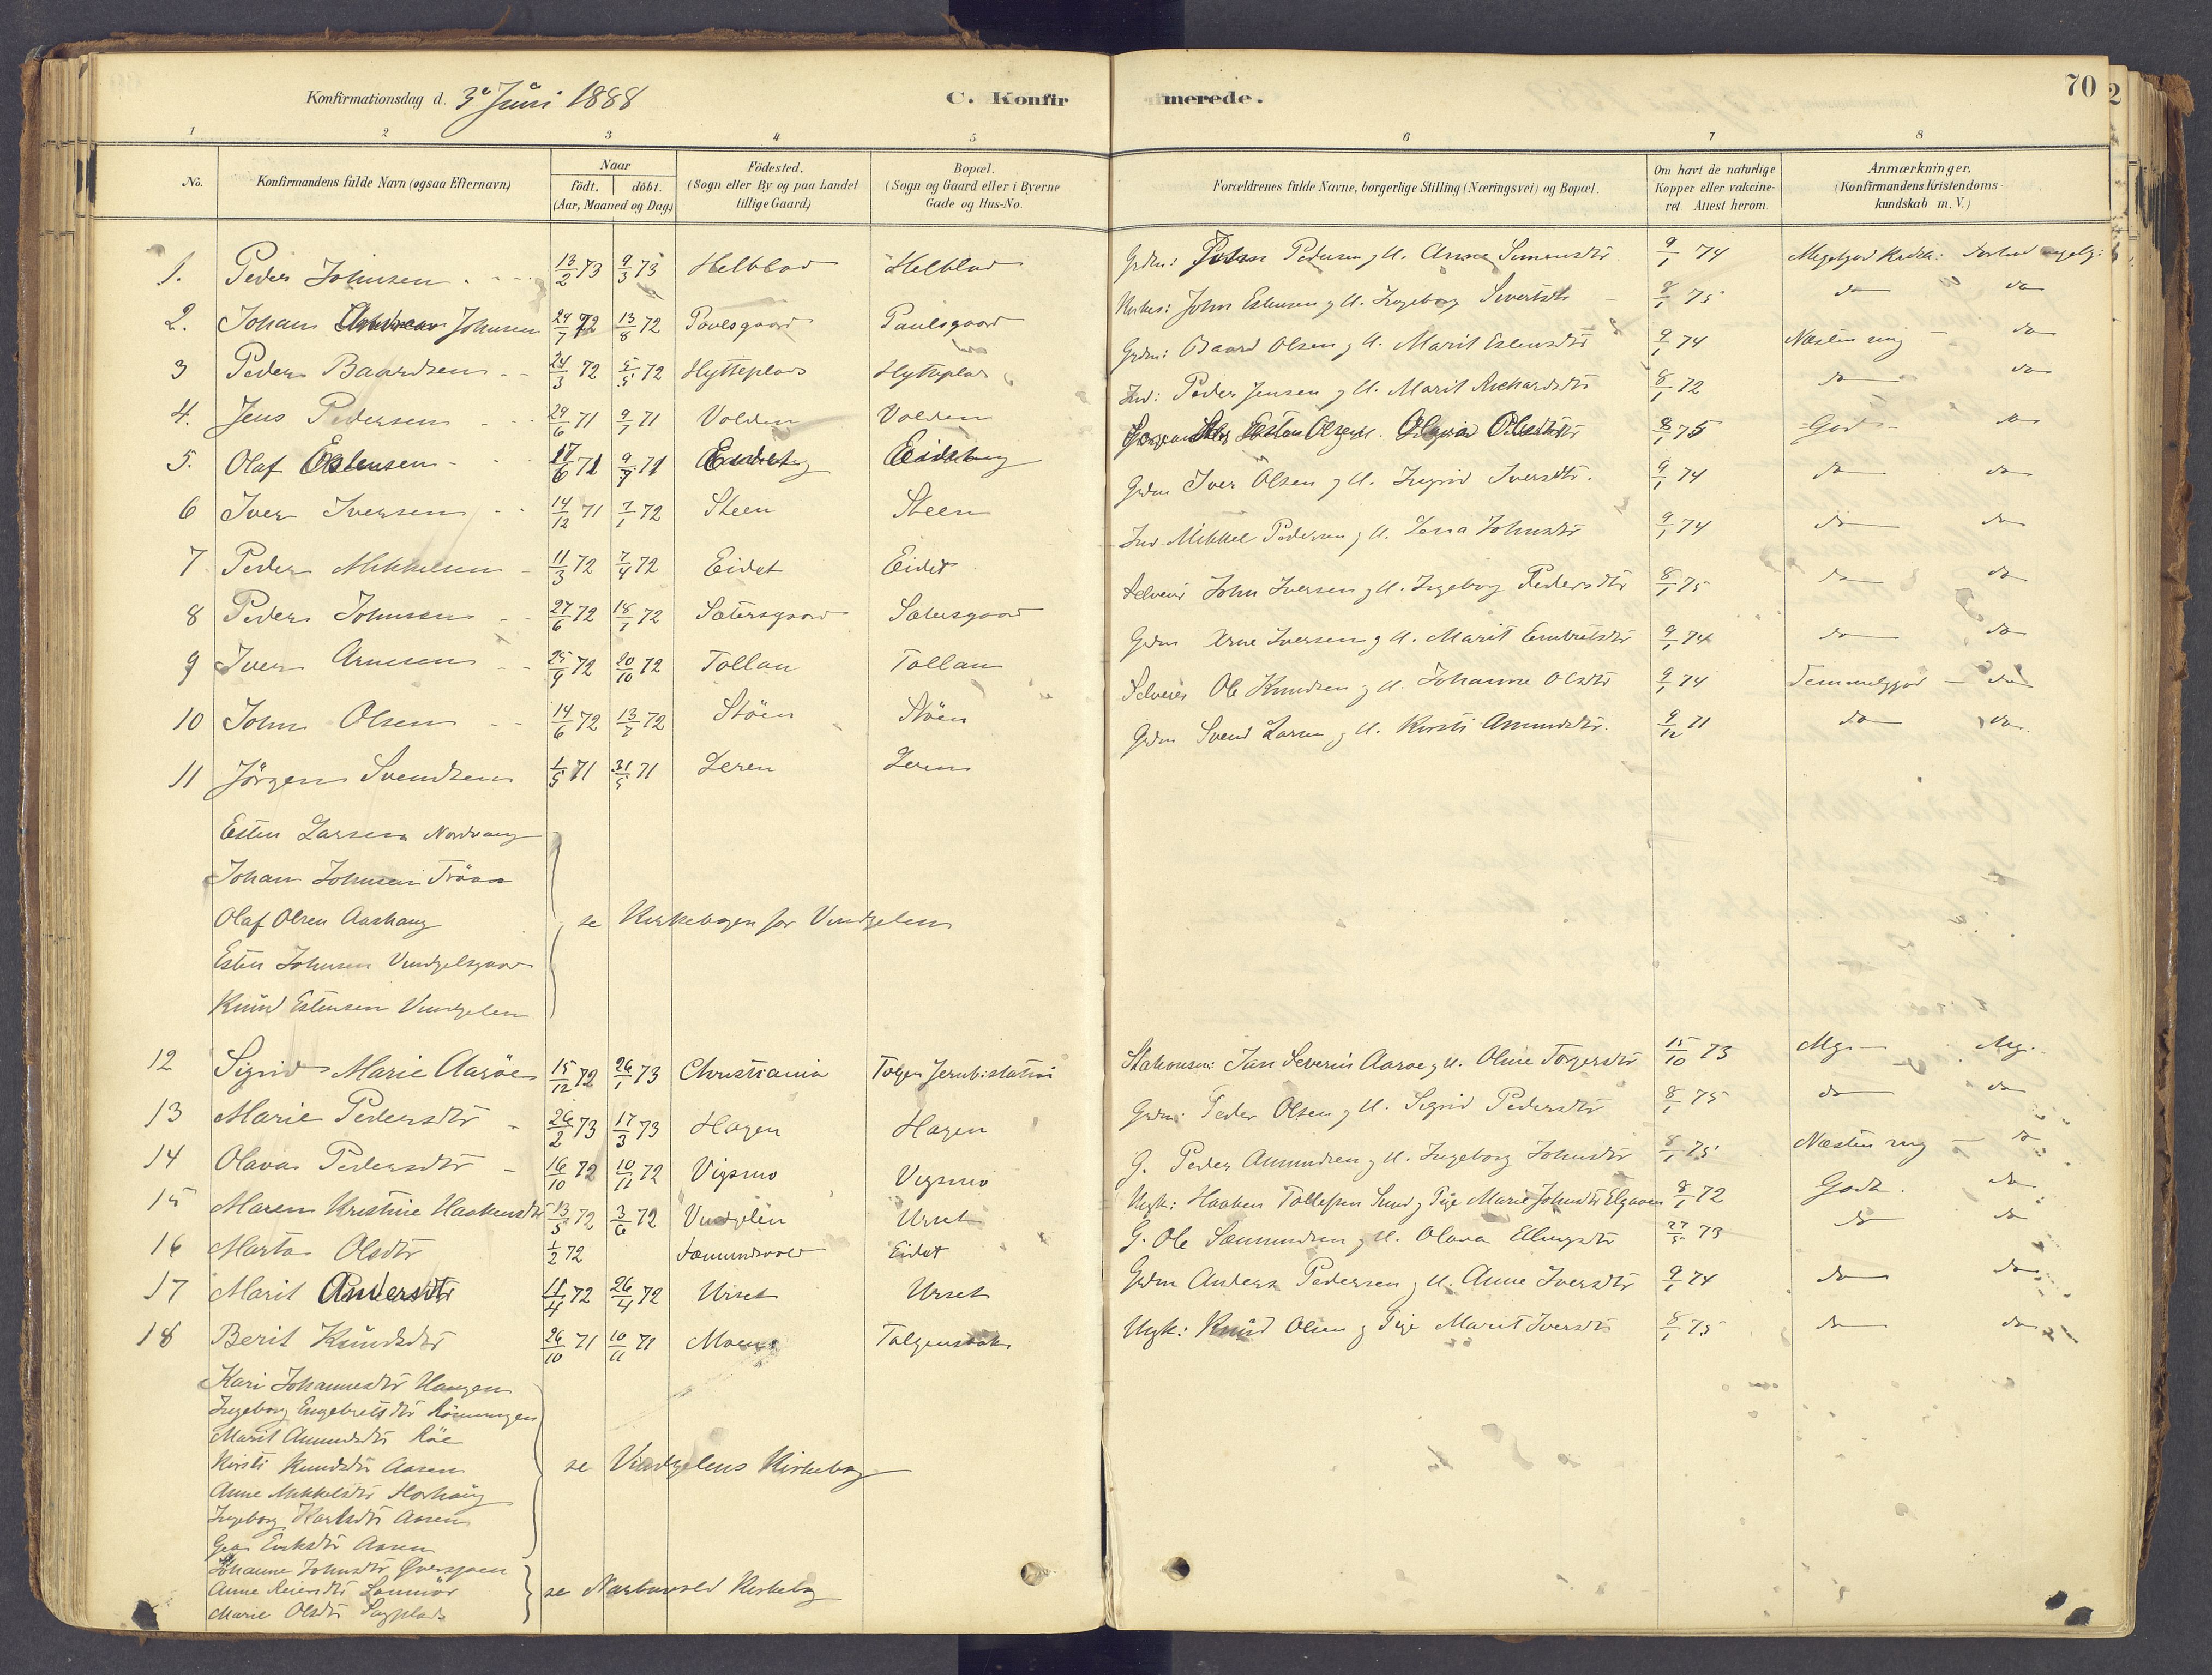 Konfirmationsdag d. 3 Juni 1888
C. Konfirmerede.
70
1 2 3 4 5 6 7 8
No.
Konfirmandens fulde Navn (ogsaa Efternavn)
Naar
født. døbt.
(Aar, Maaned og Dag)
Födested.
(Sogn eller By og paa Landet
tillige Gaard)
Bopæl.
(Sogn og Gaard eller i Byerne
Gade og Hus-No.
Forældrenes fulde Navne, borgerlige Stilling (Næringsvei) og Bopæl.
Om havt de naturlige
Kopper eller vakcine-
ret. Attest herom.
Anmærkninger.
(Konfirmandens Kristendoms-
kundskab m. V.)
1. Peder Johnsen 13/2 73 9/3 73 Pedersen g H. Anne Simensdtr 9/1 74
2. Johan Johnsen 24/7 72 13/8 72 Poulsgaard Poulsgaard John Estensen g H. Ingeborg Sivertsdtr 8/1 75 do do
3 Peder Baardsen 24/3 72 5/5 72 Hytteplads Hytteplads Grdm: Baard Olsen g H. Marit Estensdtr 9/1 74 Næsten mg do
4. Jens Pedersen 29/6 71 9/7 71 Volden Volden Ind: Peder Jensen g H. Marit Richardsdtr 8/1 72 do do
5. Olaf Estensen 17/6 71 9/7 71 Esten Olsen g H. Olsdtr 8/1 75 God do
6 Iver Iversen 14/12 71 7/1 72 Steen Steen Grdm Iver Olsen g H. Ingrid Iversdtr. 9/1 74 do do
7 Peder Mikkelsen 11/3 72 7/4 72 Eidet Eidet Ind Mikkel Pedersen g H. Johnsdtr 9/1 74 do do
8 Peder Johnsen 27/6 72 18/7 72 Sætersgaard Sætersgaard Selveier John Iversen g H. Ingeborg Pedersdtr 8/1 75 do do
9 Iver Arnesen 25/9 72 20/10 72 Tollan Tollan Grdm Arne Iversen g H. Marit Embretsdtr 9/1 74 do do
10 John Olsen 14/6 72 13/7 72 Stöen Stöen Selveier Ole Knudsen g H. Johanne Olsdtr 9/1 74 Temmelig god do
11 Jörgen Svendsen 1/5 71 31/5 71 Grdm Svend Larsen g H. Kirsti Amundsdtr. 9/12 71 do do
Esten Larsen Nordvang
Johan Johnsen Tröan
Olaf Olsen Aashaug
Esten Johnsen Vingelsgaard
Knud Estensen Vingelen
se Kirkebogen for Vingelen
12 Sigrid Marie Aaröe 15/12 72 26/1 73 Christiania Jernb:station Jan Severin Aaröe g H. Oline Torgersdtr 15/10 73 Mg. Mg.
13 Marie Pedersdtr 26/2 73 17/3 73 Hagen Hagen Grdm. Peder Olsen g H. Sigrid Pedersdtr 8/1 75 do do
14 Olava Pedersdtr 16/10 72 10/11 72 Vigsmo Vigsmo G. Peder Amundsen g H. Ingeborg Johnsdtr 8/1 75 Næsten mg do
15 Maren Kristine Haakensdtr 13/5 72 3/6 72 Vingelen Urset Ungk: Haaken Tollefsen g Pige Marie Johnsdtr 8/1 72 Godt. do
16 Marta Olsdtr 1/2 72 Eidet G. Ole g H. Olava Ellingsdtr 27/5 73 do do
17 Marit Andersdtr 11/4 72 26/4 72 Urset Urset Grdm Anders Pedersen g H. Anne Iversdtr 9/1 74 do do
18 Berit Knudsdtr 26/10 71 10/11 71 Moen Ungk: Knud Olsen g Pige Marit Iversdtr 8/1 75 do do
Kari Johannesdtr Haugen
Ingeborg Engebretsdtr Rönningen
Marit Amundsdtr Röe
Kirsti Knudsdtr Aasen
Anne Mikkelsdtr
Ingeborg Aasen
Eriksdtr Aasen
se Vingelens Kirkebog
Johanne Johnsdtr
Anne
Marie Olsdtr Sagplads
se Kirkebog